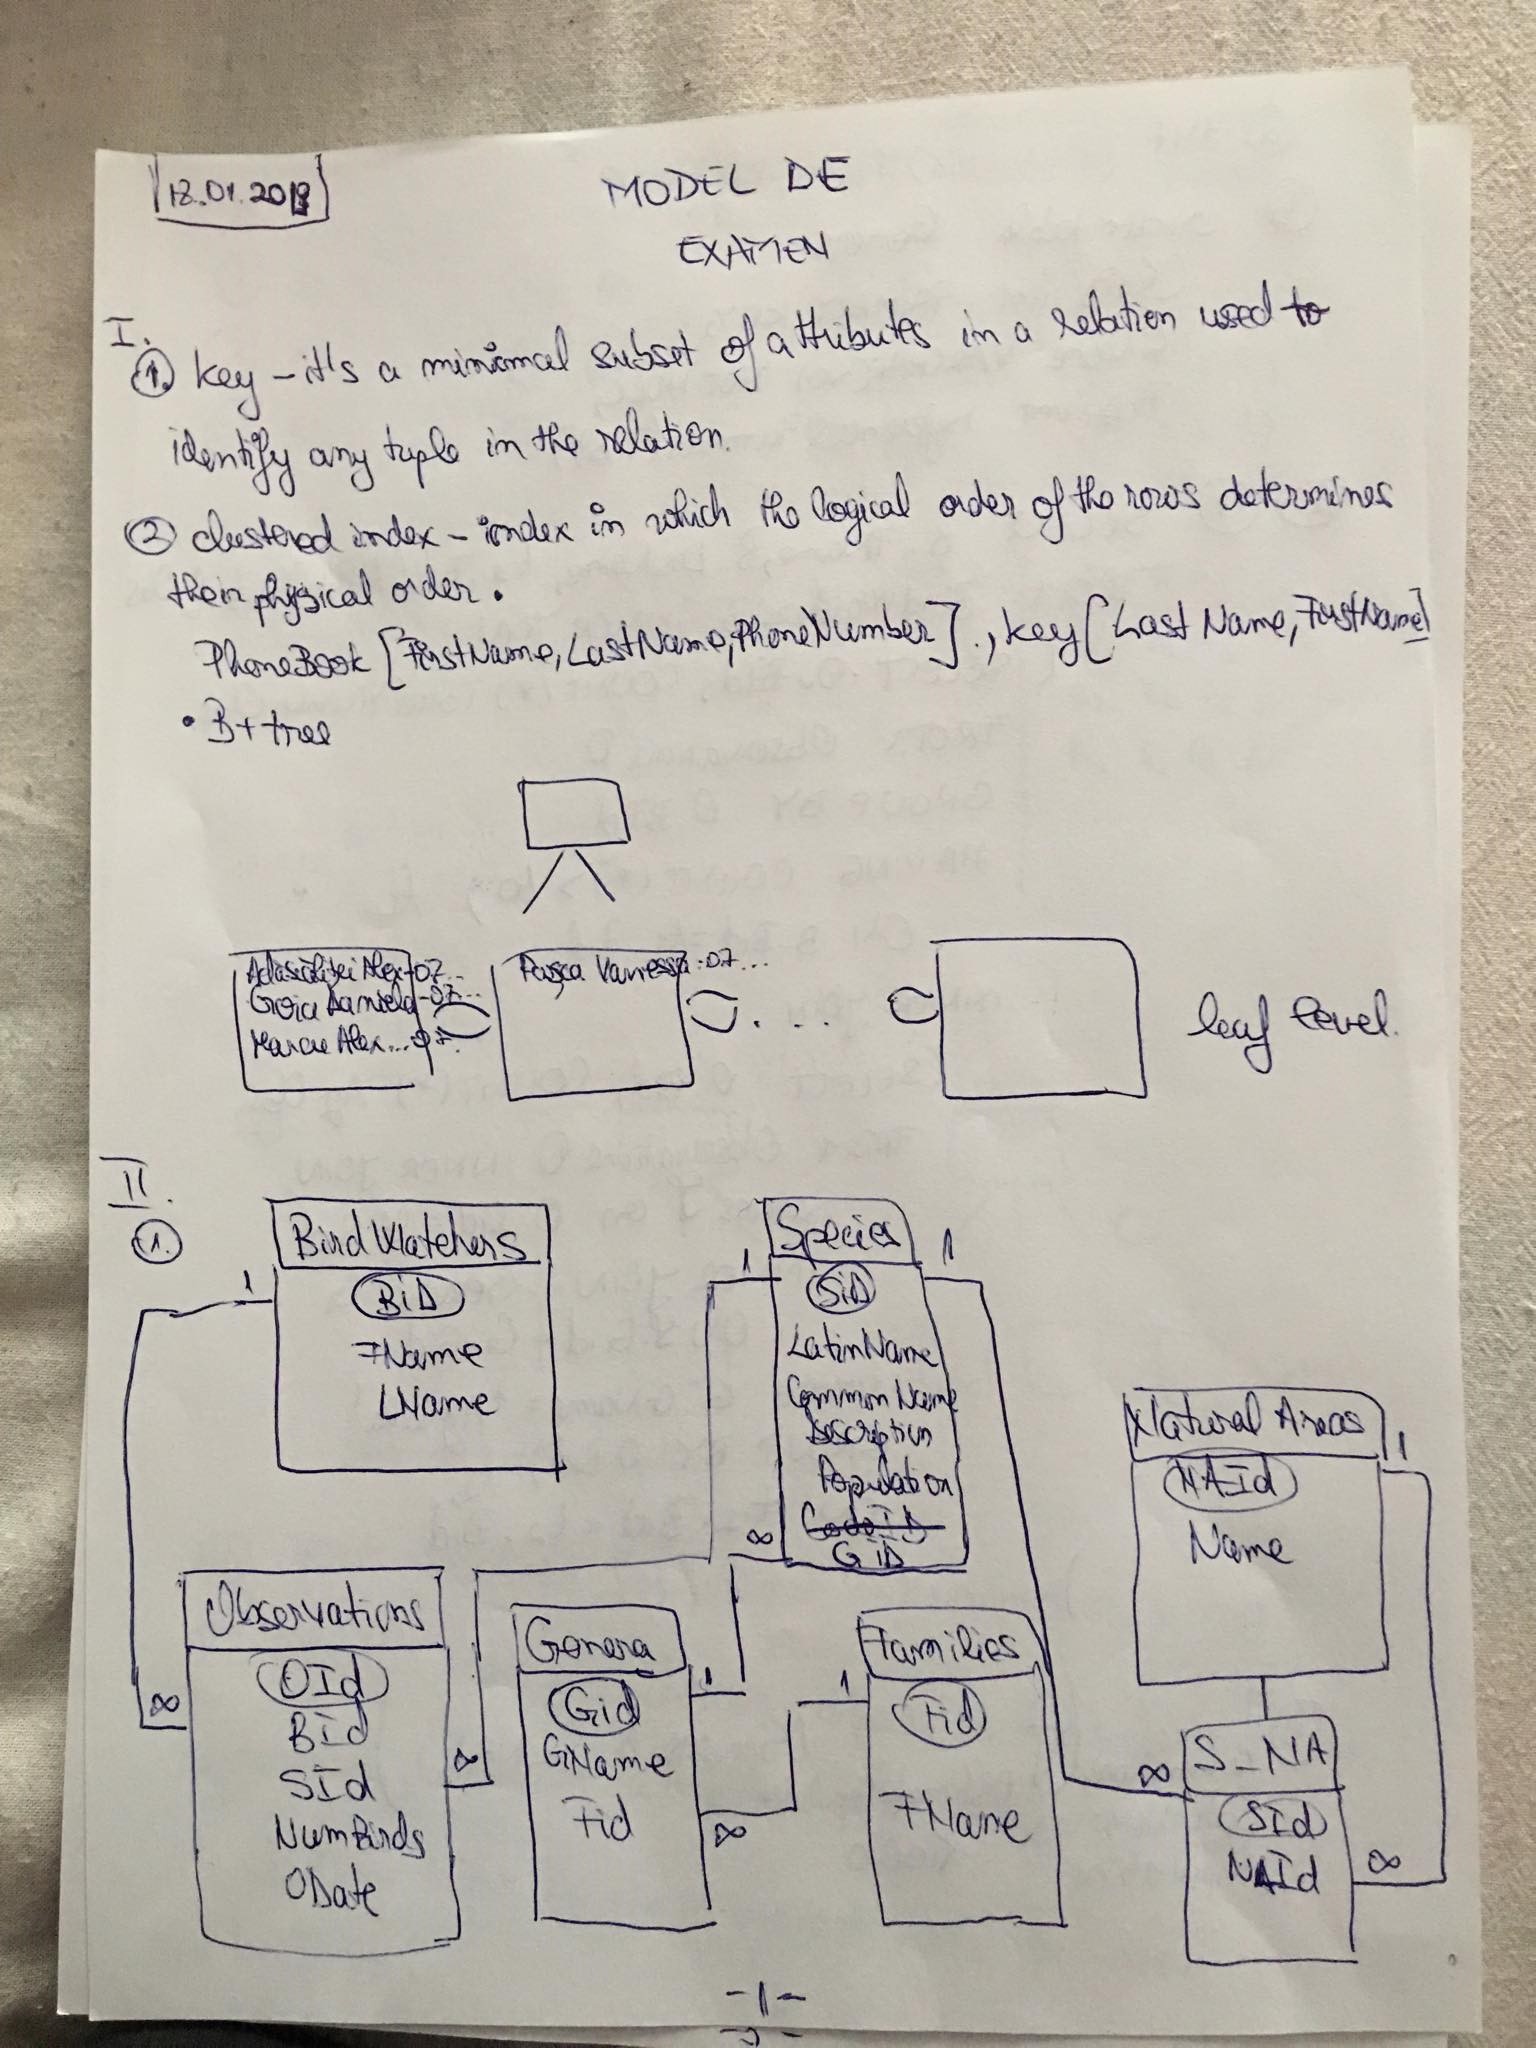 18.01.2018
MODEL DE
EXAMEN
I.
1. key - it's a minimal subset of attributes in a relation used to
identify any tuple in the relation.
2 clustered index - index in which the logical order of the rows determines
their physical order.
PhoneBook [FirstName, LastName, PhoneNumber]., key [Last Name, FirstName]
• B+ tree
Alex-07...
Daniela-07...
Alex...07.
Pașca Vanessa-07...
. ...
leaf level.
II.
1.
Bird Watchers
BiD
FName
LName
1
Species
SiD
LatinName
Common Name
Description
Population
CodeID
GiD
1
1
∞
Natural Areas
NAId
Name
1
Observations
OId
BId
SId
NumBirds
ODate
∞
∞
Genera
Gid
GName
Fid
1
∞
Families
Fid
FName
1
S_NA
SId
NAId
∞
∞
-1-